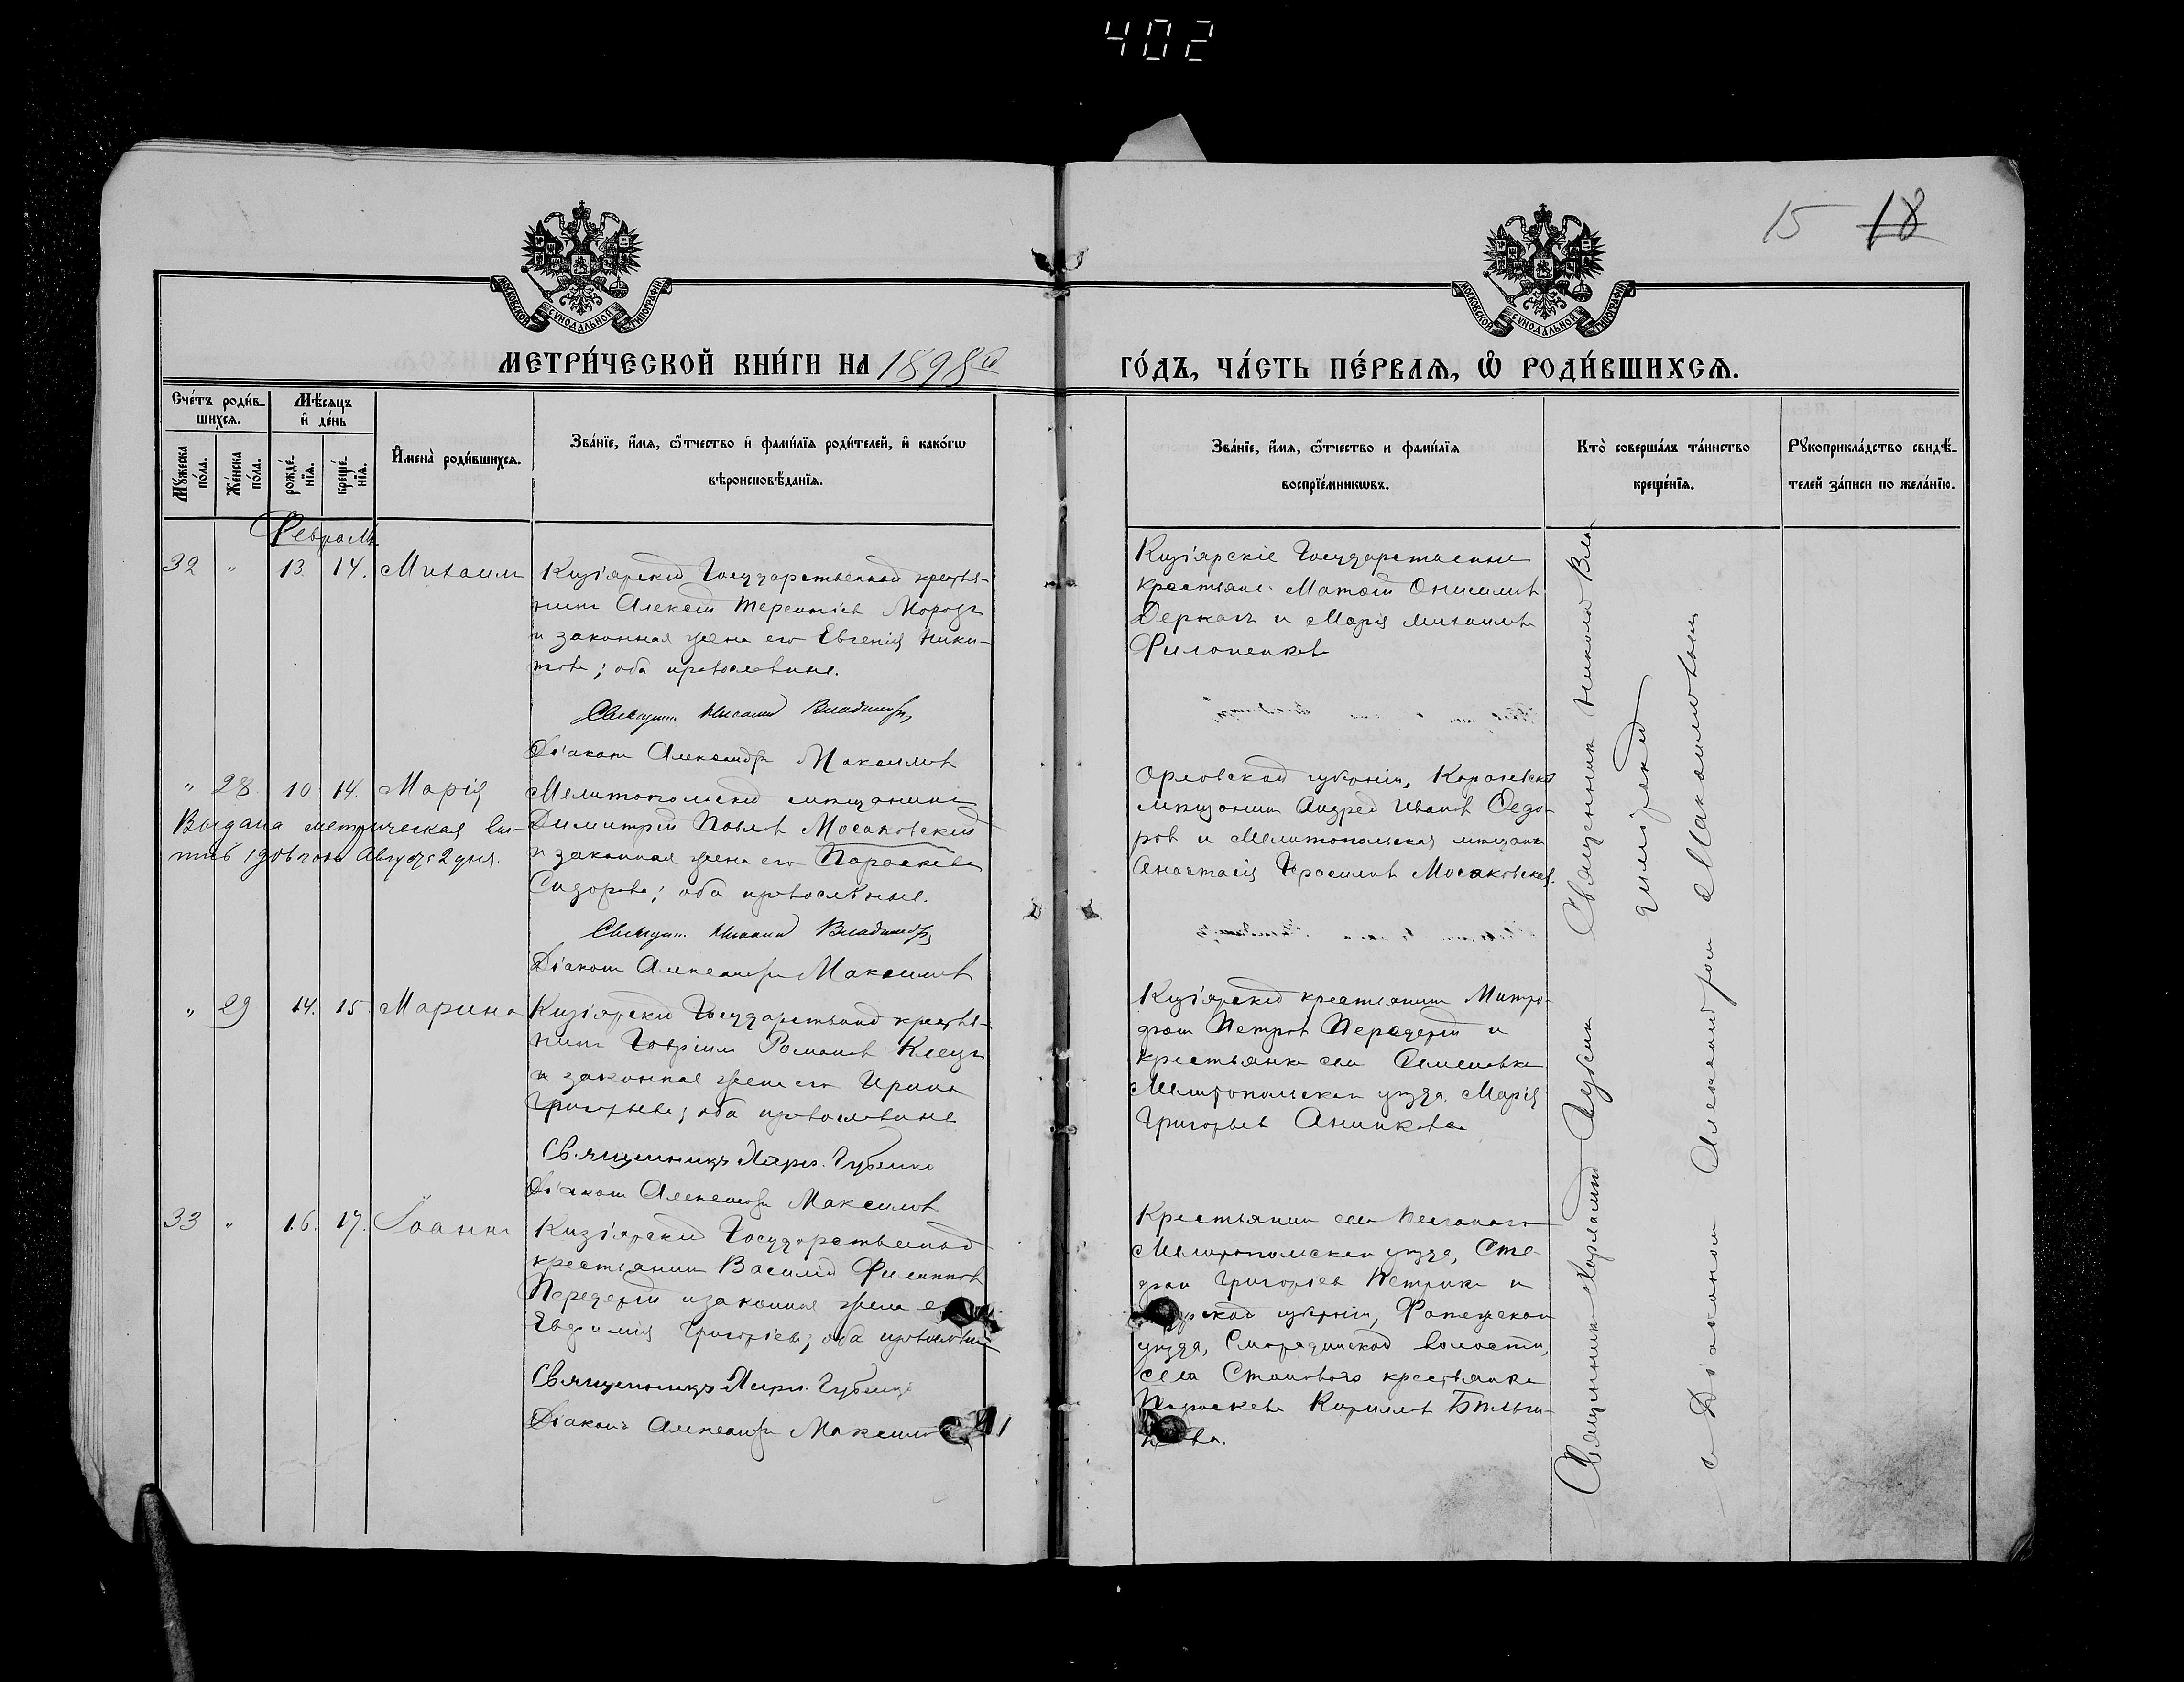 402
15 18
МОСКОВСКОЙ СѴНОДАЛЬНОЙ ТИПОГРАФІИ
МОСКОВСКОЙ СѴНОДАЛЬНОЙ ТИПОГРАФІИ
МЕТРИ́ЧЕСКОЙ КНИ́ГИ НА 1898й
ГО́ДЪ, ЧА́СТЬ ПЕ́РВАѦ, Ѡ РОДИ́ВШИХСѦ.
Сче́тъ роди́в-
шихсѧ.
Мꙋ́жеска по́ла.
Же́нска по́ла.
Мѣ́сѧцъ
и де́нь
рожде́-нїѧ.
креще́-нїѧ.
Имена̀ роди́вшихсѧ.
Зва́нїе, и́мѧ, ѻ́тчество и фами́лїѧ роди́телей, и како́гѡ
вѣроисповѣ́данїѧ.
Зва́нїе, и́мѧ, ѻ́тчество и фами́лїѧ
воспрїе́мникѡвъ.
Кто̀ соверша́лъ та́инство
креще́нїѧ.
Рꙋкоприкла́дство свидѣ́-
телей за́писи по жела́нїю.
Февраль
32 " 13. 14. Михаилъ
Кизіярскій Государственный крестья-
нинъ Алексій Терентіевъ Морозъ
и законная жена его Евгенія Ники-
това; оба православные.
Священ. Николай Владимір
Діаконъ Александръ Максимовъ
Кизіярскіе Государственные
крестьяне: Матѳій Онисимовъ
Деркачъ и Марія Михаилова
Филоненкова
" 28 10 14. Марія
Выдана метрическая вы-
пись 1906 года Августа 2 дня.
Мелитопольскій мѣщанинъ
Димитрій Павловъ Мосаковскій
и законная жена его Параскева
Сидорова; оба православные.
Священ. Николай Владимір
Діаконъ Александръ Максимовъ
Орловской губерніи, Карачевскій
мѣщанинъ Андрей Ивановъ Федо-
ровъ и Мелитопольская мѣщанка
Анастасія Герасимова Мосаковская.
" 29 14. 15. Марина
Кизіярскій Государственный крестья-
нинъ Гавріилъ Романовъ
и законная жена его Ирина
Григорьева; оба православные
Священникъ Харл. Губенко
Діаконъ Александръ Максимовъ
Кизіярскій крестьянинъ Митро-
фанъ Петровъ Передерій и
крестьянка села Семеновки
Мелитопольскаго уѣзда, Марія
Григорьева Аникеева
33 " 16. 17. Іоаннъ
Кизіярскій Государственный
крестьянинъ Василій Филипповъ
Передерій и законная жена
Евфимія Григоріева; оба православные
Священникъ Харл. Губенко
Діаконъ Александръ Максимовъ
Крестьянинъ села
Мелитопольскаго уѣзда, Сте-
фанъ Григоріевъ Петрики и
Курской губерніи, Фатежскаго
уѣзда, Смородинской волости,
села Становаго крестьянка
Параскева Кириллова
Священникъ Харлампій Губенко Священникъ Николай Вла-
димірскій
съ Діакономъ Александромъ Максимовымъ